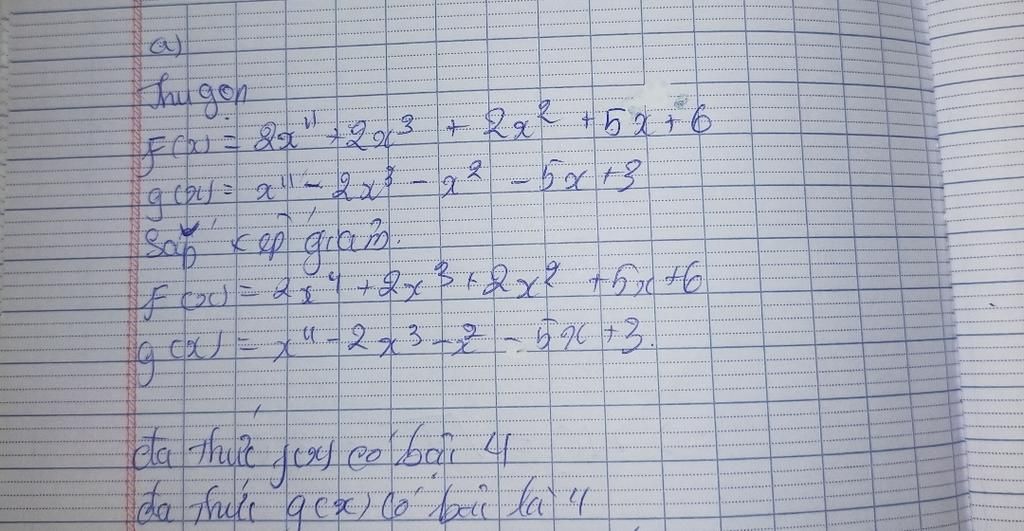 a)
Thu gọn
F(x) = 2x⁴ + 2x³ + 2x² + 5x + 6
g(x) = x⁴ - 2x³ - x² - 5x + 3
Sắp xếp giảm.
F(x) = 2x⁴ + 2x³ + 2x² + 5x + 6
g(x) = x⁴ - 2x³ - x² - 5x + 3.
đa thức f(x) có bậc 4
đa thức g(x) có bậc là 4